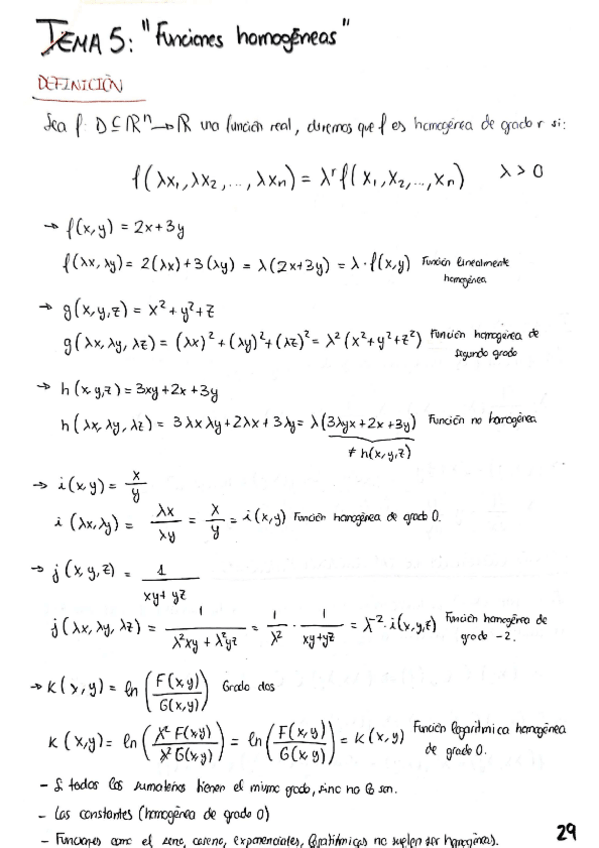 TEMA 5: "Funciones homogéneas"
DEFINICIÓN
Sea f: D ⊆ ℝⁿ → ℝ una función real, diremos que f es homogénea de grado r si:
f(λx₁, λx₂, ..., λxₙ) = λʳ f(x₁, x₂, ..., xₙ) λ > 0
→ f(x,y) = 2x+3y
f(λx, λy) = 2(λx)+3(λy) = λ(2x+3y) = λ·f(x,y) Función linealmente
homogénea
→ g(x,y,z) = x²+y²+z
g(λx, λy, λz) = (λx)²+(λy)²+(λz)² = λ²(x²+y²+z²) Función homogénea de
segundo grado
→ h(x,y,z) = 3xy+2x+3y
h(λx, λy, λz) = 3λxλy+2λx+3λy = λ(3λyx+2x+3y) Función no homogénea
≠ h(x,y,z)
→ i(x,y) = x/y
i(λx,λy) = λx/λy = x/y = i(x,y) Función homogénea de grado 0.
→ j(x,y,z) = 1/(xy+yz)
j(λx, λy, λz) = 1/(λ²xy + λ²yz) = 1/λ² · 1/(xy+yz) = λ⁻²·i(x,y,z) Función homogénea de
grado -2.
→ K(x,y) = ln(F(x,y)/G(x,y)) Grado dos
K(x,y) = ln(λ² F(x,y)/λ² G(x,y)) = ln(F(x,y)/G(x,y)) = K(x,y) Función logarítmica homogénea
de grado 0.
- Si todos los sumandos tienen el mismo grado, sino no lo son.
- Las constantes (homogénea de grado 0)
- Funciones como el seno, coseno, exponenciales, logarítmicas no suelen ser homogéneas.
29